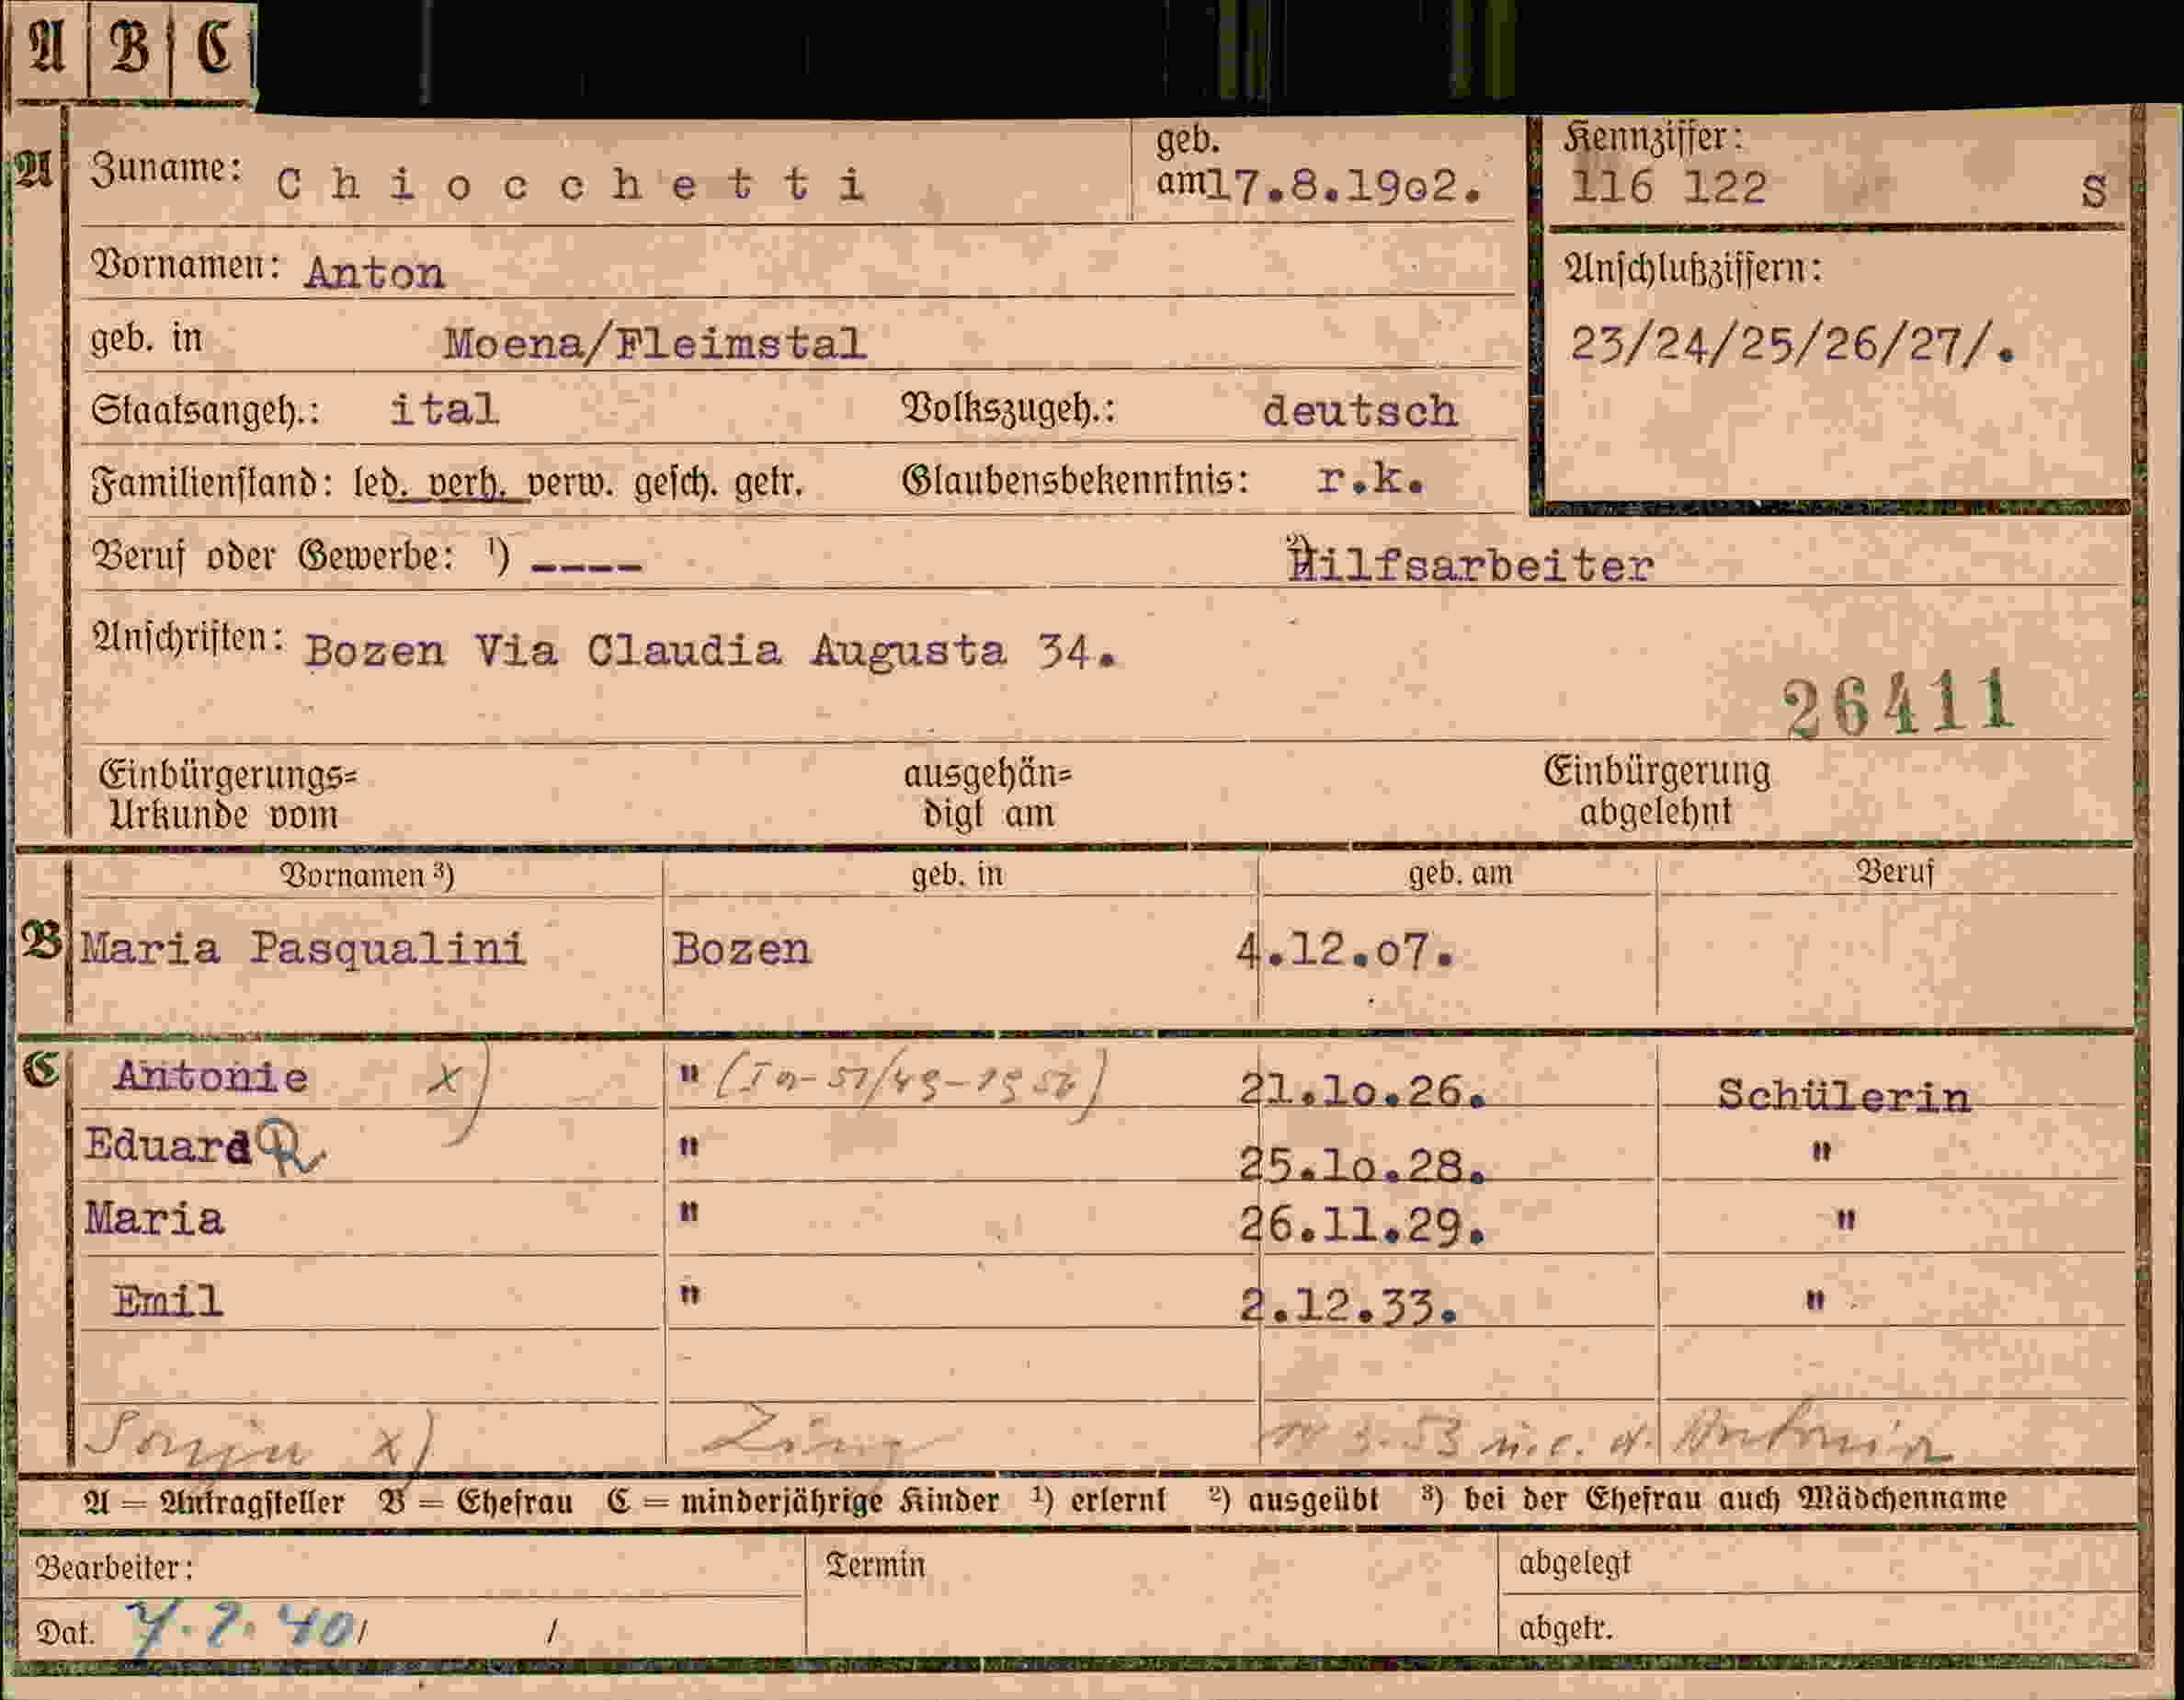 A B C
A Zuname: Chiocchetti geb. am 17.8.19o2. Kennziffer: 116 122 S
Vornamen: Anton
Anschlußziffern:
geb. in Moena/Fleimstal 23/24/25/26/27/.
Staatsangeh.: ital Volkszugeh.: deutsch
Familienstand: led. verh. verw. gesch. getr. Glaubensbekenntnis: r.k.
Beruf oder Gewerbe: 1) ---- 2) Hilfsarbeiter
Anschriften: Bozen Via Claudia Augusta 34.
26411
Einbürgerungs= ausgehän= Einbürgerung
Urkunde vom digt am abgelehnt
Vornamen 3) geb. in geb. am Beruf
B Maria Pasqualini Bozen 4.12.o7.
C Antonie x) " 21.1o.26. Schülerin
Eduard R " 25.1o.28. "
Maria " 26.11.29. "
Emil " 2.12.33. "
x) 3.53
A = Antragsteller B = Ehefrau C = minderjährige Kinder 1) erlernt 2) ausgeübt 3) bei der Ehefrau auch Mädchenname
Bearbeiter: Termin abgelegt
Dat. / / abgetr.